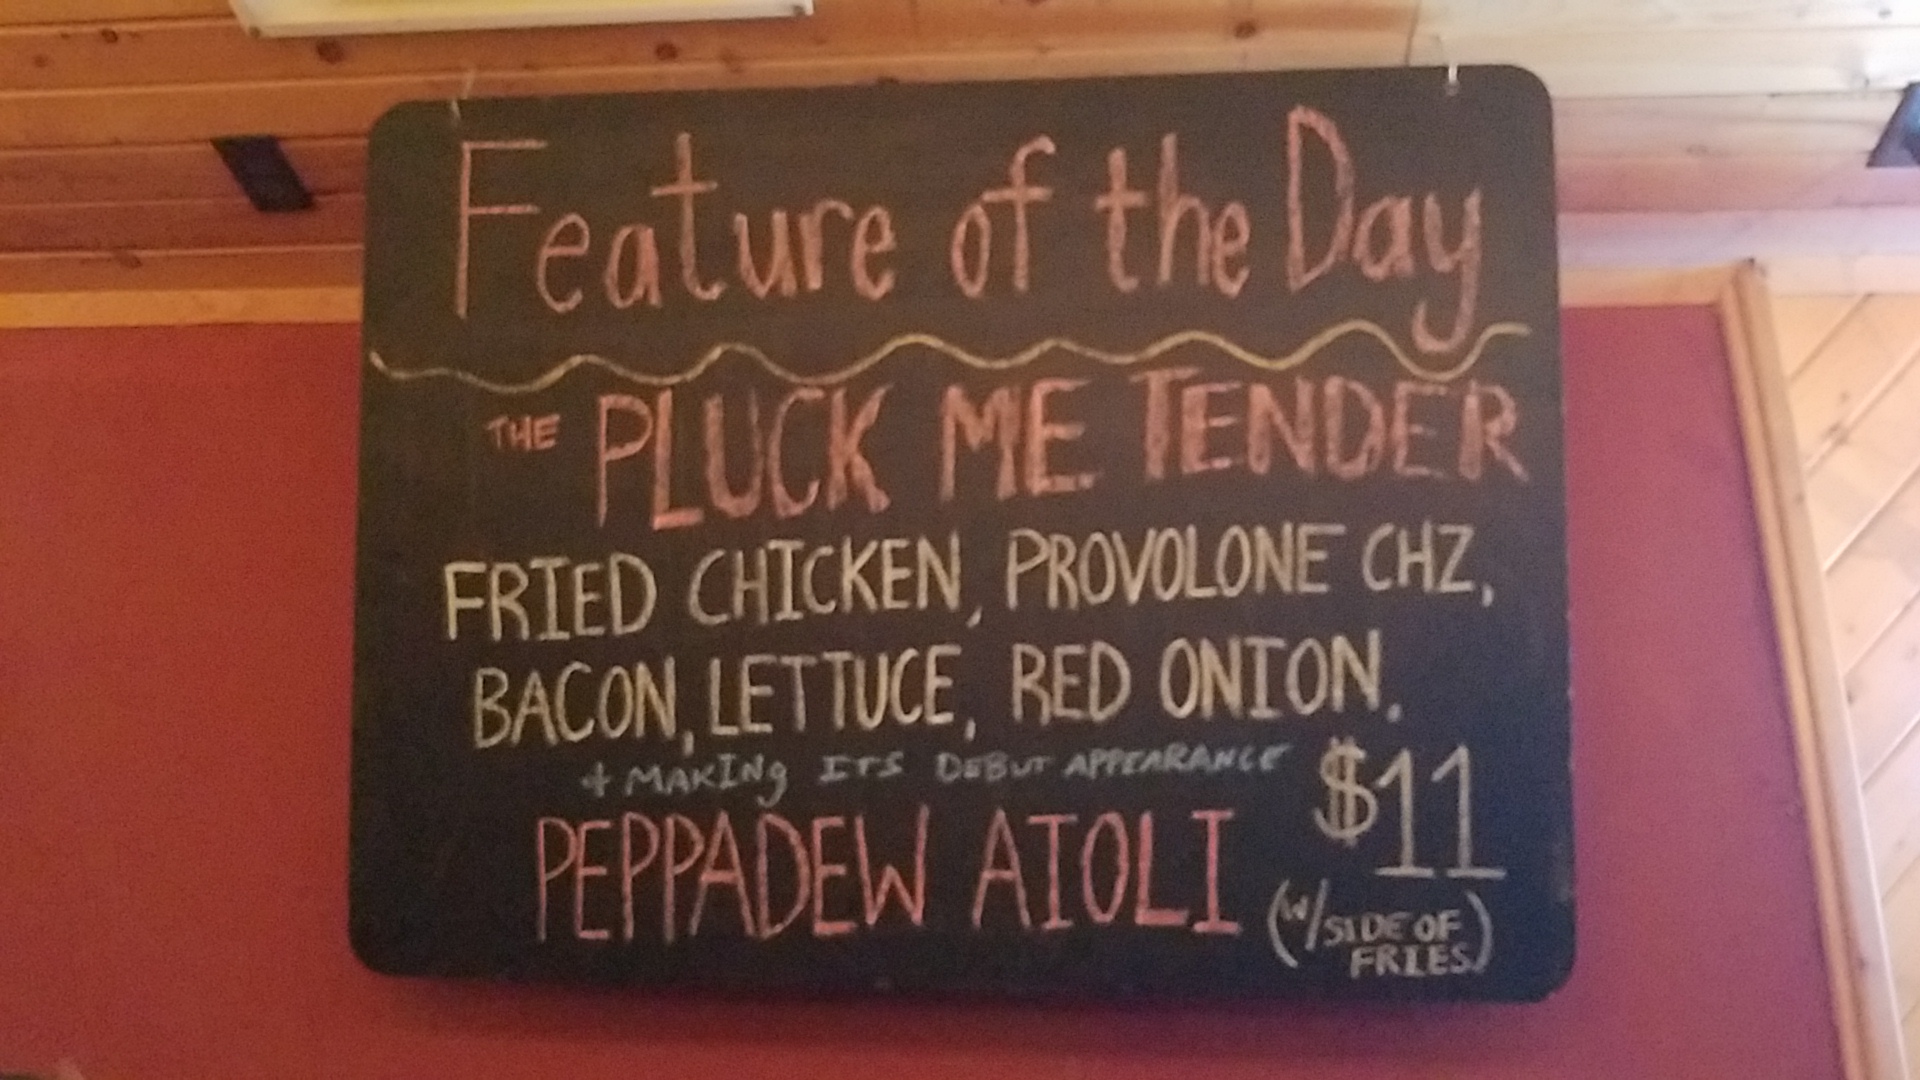 Feature of the Day
THE PLUCK ME TENDER
FRIED CHICKEN, PROVOLONE CHZ,
BACON, LETTUCE, RED ONION.
+ MAKING ITS DEBUT APPEARANCE
PEPPADEW AIOLI
$11
(W/SIDE OF
FRIES)